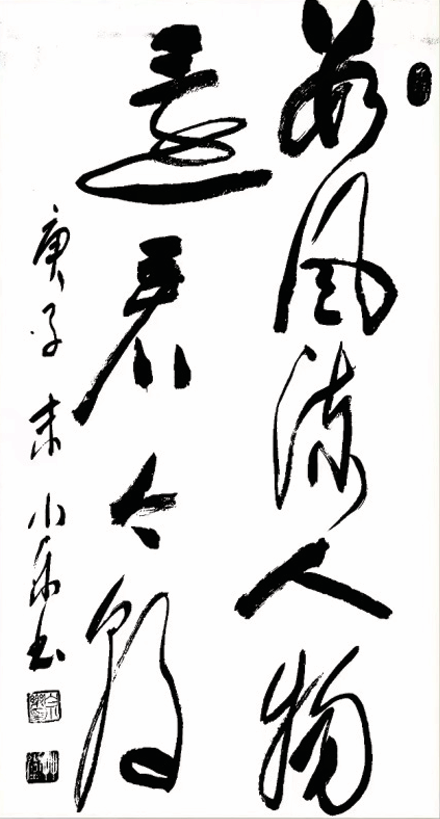 数风流人物
还看今朝
庚子末小乐书